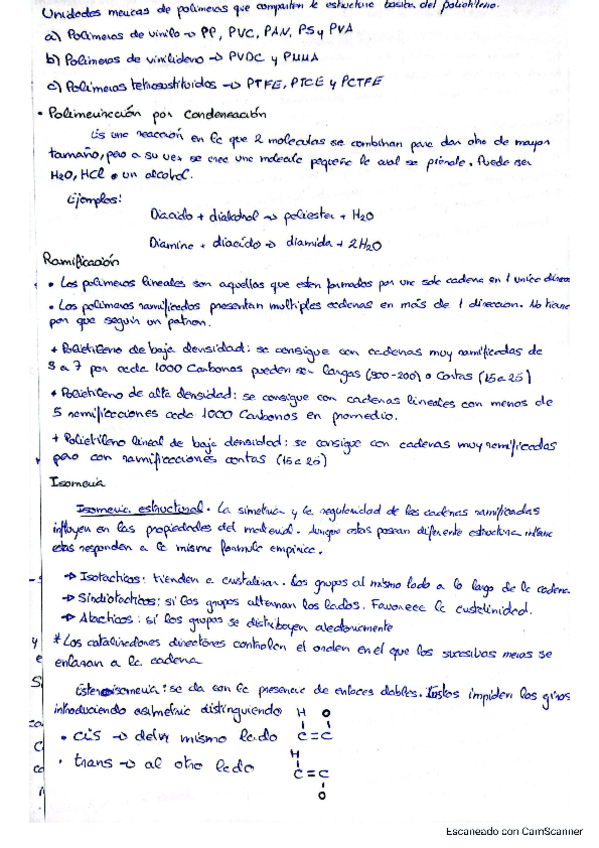 Unidades mericas de polimeros que comparten la estructura basica del polietileno.
a) Polimeros de vinilo → PP, PVC, PAN, PS y PVA
b) Polimeros de vinilideno → PVDC y PMMA
c) Polimeros tetrasustituidos → PTFE, PTCE y PCTFE
• Polimerización por Condensación
Es una reacción en la que 2 moleculas se combinan para dar otra de mayor
tamaño, pero a su vez se crea una molecula pequeña la cual se pierde. Puede ser
H2O, HCl o un alcohol.
Ejemplos:
Diacido + dialcohol → poliester + H2O
Diamina + diacido → diamida + 2H2O
Ramificación
• Los polimeros lineales son aquellos que esten formados por una sola cadena en 1 unica direcc
• Los polimeros ramificados presentan multiples cadenas en más de 1 direccion. No tiene
por que seguir un patron.
+ Polietileno de baja densidad: se consigue con cadenas muy ramificadas de
a 7 por cada 1000 Carbonos pueden ser largas (-200) o Cortas (15 a 25)
• Polietileno de alta densidad: se consigue con cadenas lineales con menos de
5 ramificaciones cada 1000 Carbonos en promedio.
+ Polietileno lineal de baja densidad: se consigue con cadenas muy ramificadas
pero con ramificaciones cortas (15 a 25)
Isomeria
Isomeria estructural. La simetria y la regularidad de las cadenas ramificadas
influyen en las propiedades del material. Aunque estas posean diferente estructura
estas responden a la misma formula empirica.
→ Isotacticos: tienden a cristalizar. Los grupos al mismo lado a lo largo de la cadena.
→ Sindiotacticos: si los grupos alternan los lados. Favorece la cristalinidad.
→ Atacticos: si los grupos se distribuyen aleatoriamente
* Los catalizadores directores controlan el orden en el que los sucesivos meros se
enlazan a la cadena
Estereoisomeria: se da con la presencia de enlaces dobles. Estos impiden los giros
introduciendo asimetria distinguiendo H O
• cis → del mismo lado C=C
• trans → al otro lado H
C=C
O
Escaneado con CamScanner